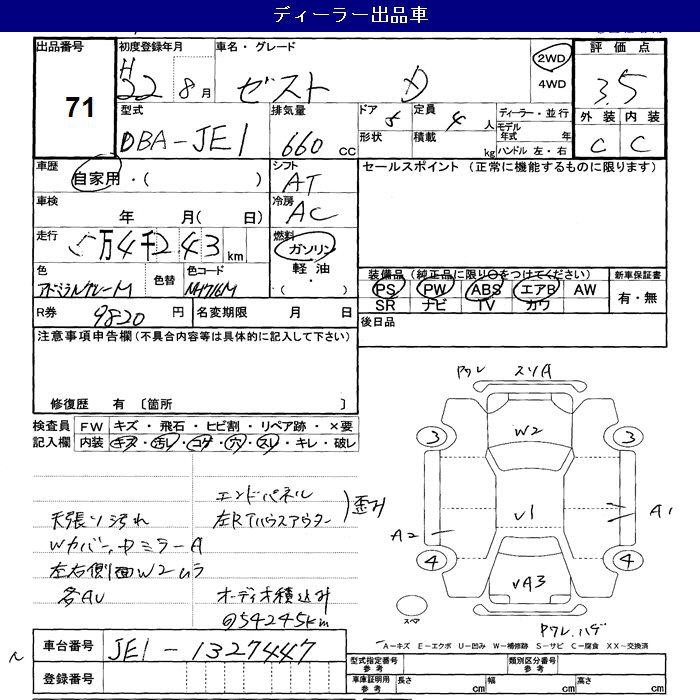 ディーラー出品車
出品番号 71
初度登録年月 H22 8月
車名・グレード ゼスト D
2WD 4WD
評価点 3.5
外装 内装
C C
型式 DBA-JE1
排気量 660 CC
ドア 5 形状
定員 4人 積載 kg
ディーラー・並行
モデル年式 年
ハンドル 左・右
車歴 自家用・( )
シフト AT
セールスポイント (正常に機能するものに限ります)
車検 年 月( 日)
冷房 AC
走行 5万4千243km
燃料 ガソリン 軽油 ・( )
色 アドミラルグレーM 色替 色コード NH716M
装備品(純正品に限り○をつけてください)
新車保証書
PS PW ABS エアB AW
有・無
SR ナビ TV カワ
R券 9820円 名変期限 月 日
後日品
注意事項申告欄(不具合内容等は具体的に記入して下さい)
修復歴 有 〔箇所 〕
検査員記入欄 FW キズ・飛石・ヒビ割・リペア跡・×要
内装 キズ・汚レ・コゲ・穴・スレ・キレ・破レ
ワレ スリA
3 3
W2
V1
A2 A1
4 4
VA3
スペア
ワレ、ハゲ
エンドパネル
左Rタイハウスアウター
歪み
天張り汚れ
Wカバー、ドミラーA
左右側面W2ムラ
各AU
オーディオ積込み
@54245km
A-キズ E-エクボ U-凹み W-補修跡 S-サビ C-腐食 XX-交換済
車台番号 JE1-1327447
登録番号
型式指定番号 参考
類別区分番号 参考
車庫証明用 参考 長さ cm 幅 cm 高さ cm